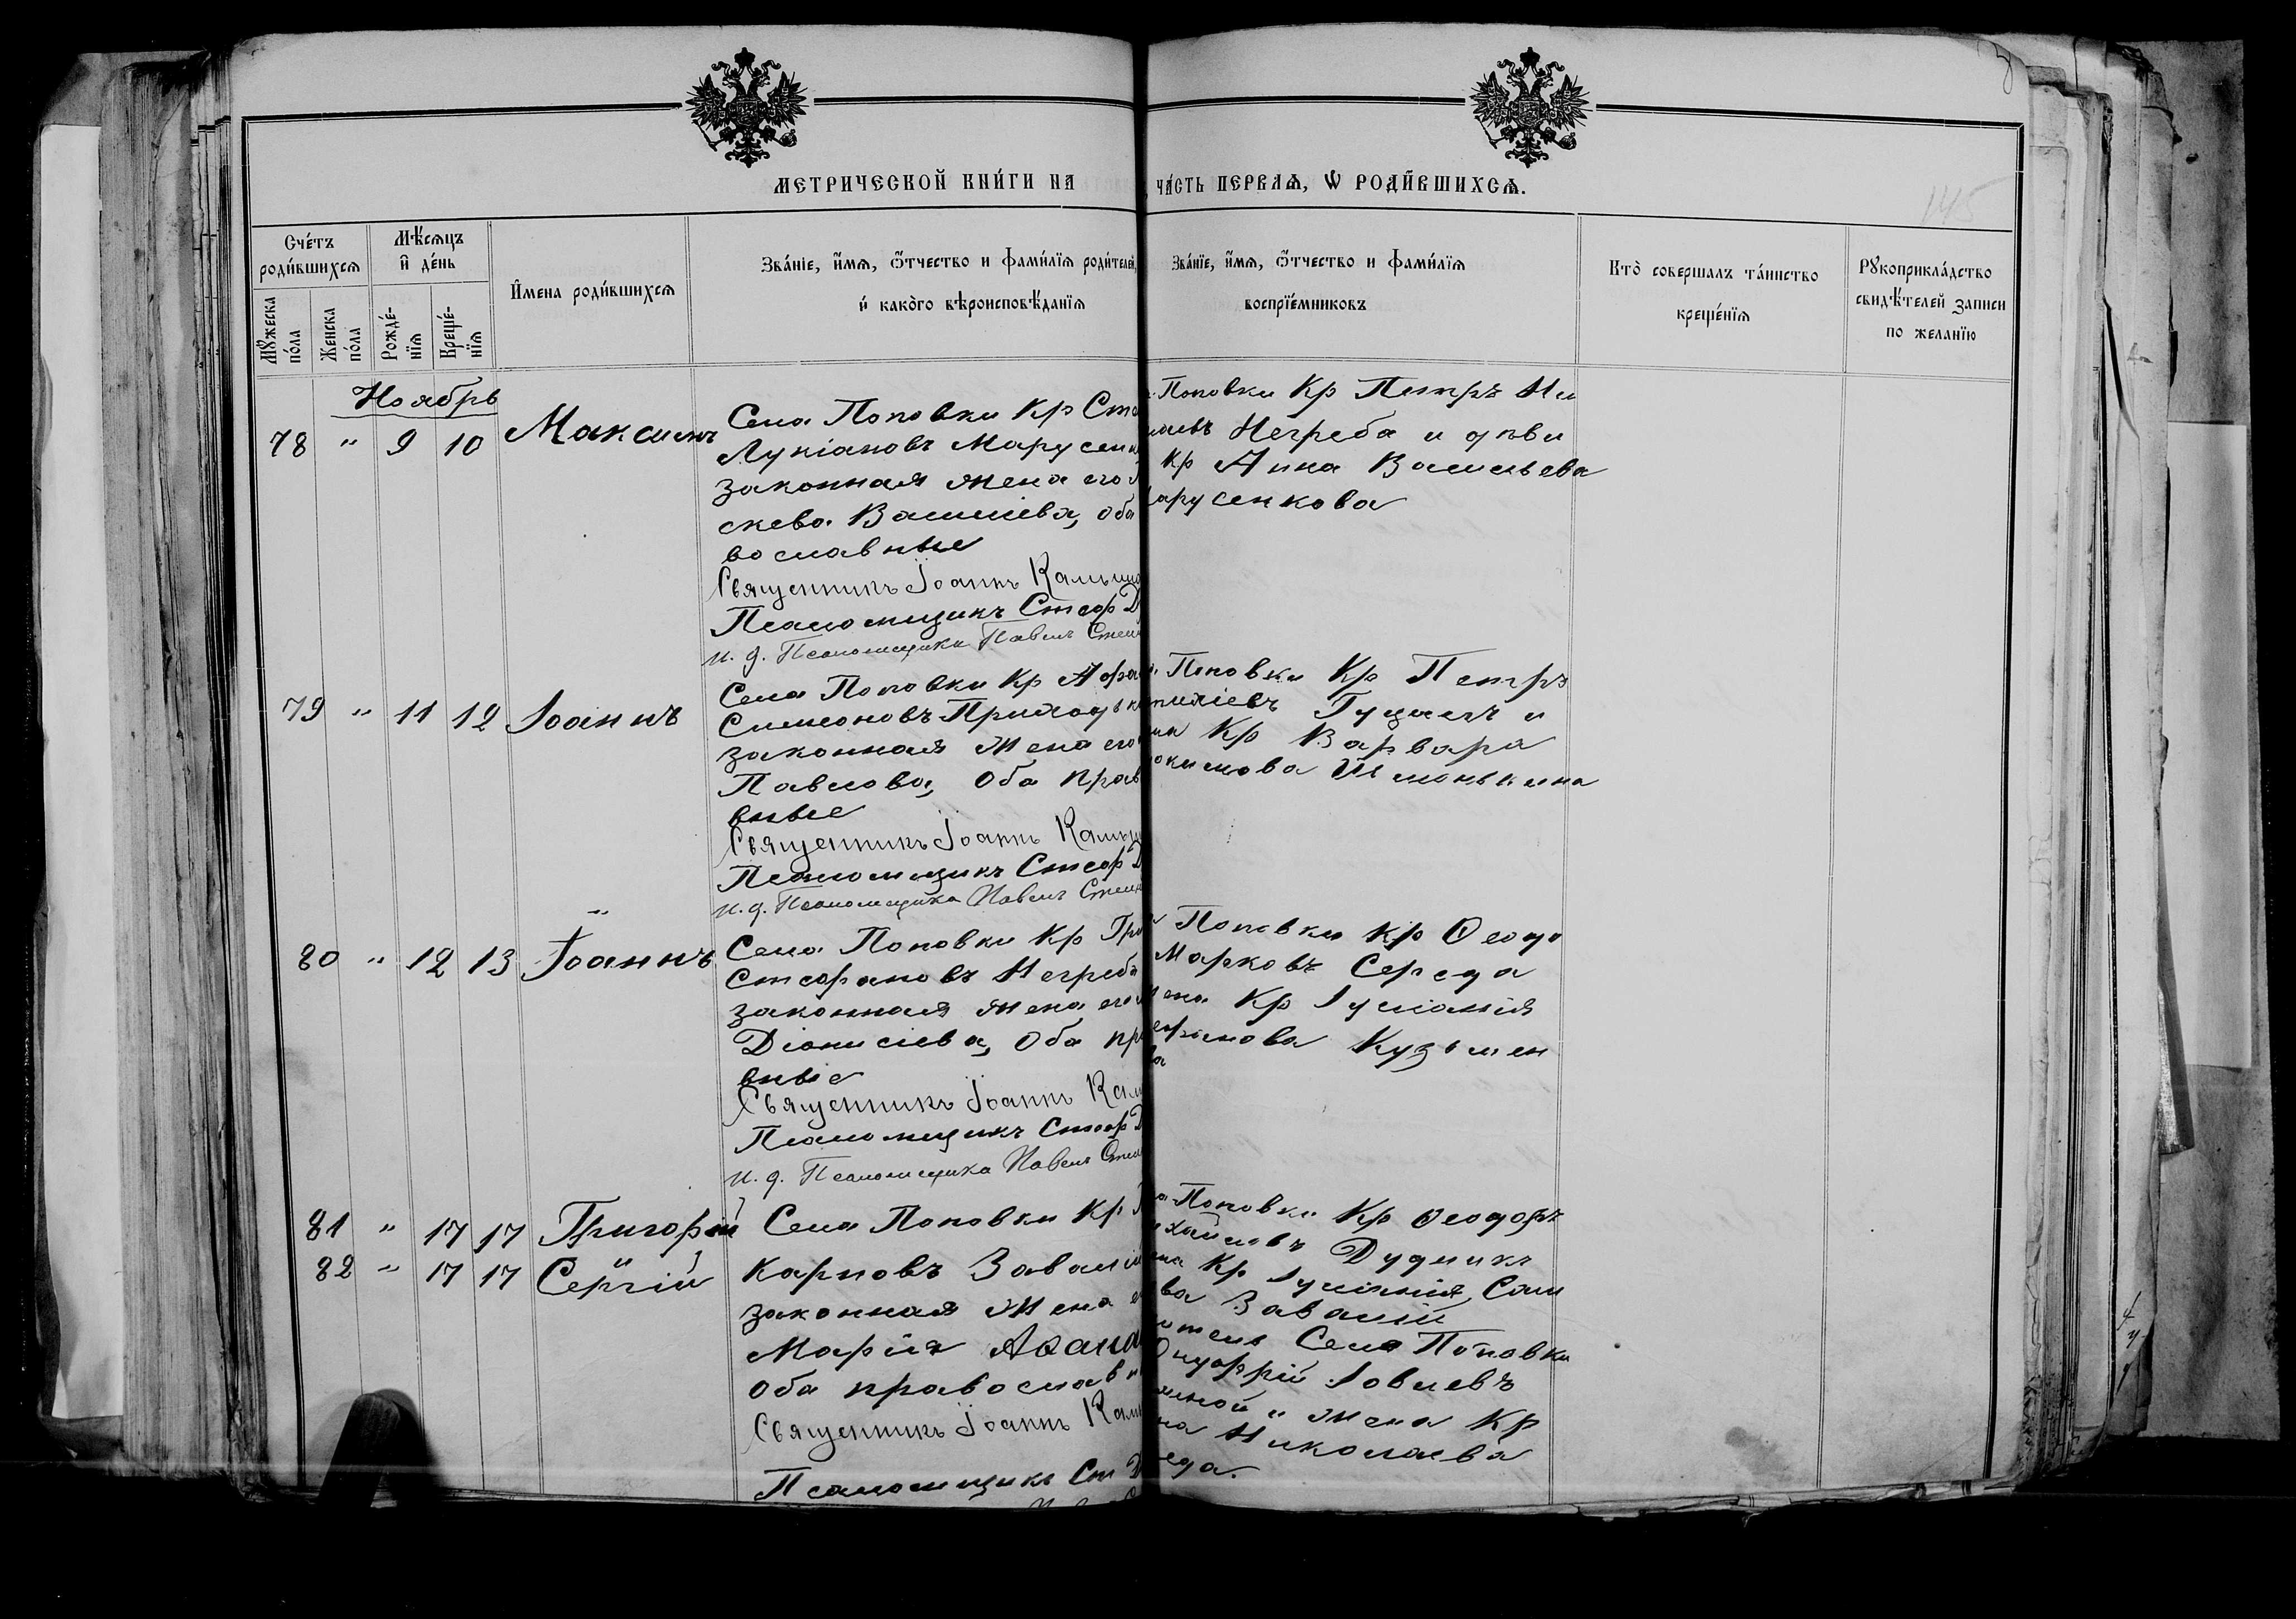 МЕТРИЧЕСКОЙ КНИ́ГИ НА
ЧА́СТЬ ПЕРВАѦ, Ѡ РОДИ́ВШИХСѦ.
145
Сче́тъ родившихсѧ
Мѣ́сѧцъ и де́нь
Мꙋжеска по́ла
Женска по́ла
Рожде́-нїѧ
Креще́-нїѧ
И́мена роди́вшихсѧ
Зва́нїе, и́мѧ, ѻ҆́тчество и фами́лїѧ роди́телей,
и́ како́го вѣроисповѣ́данїѧ
Зва́нїе, и́мѧ, ѻ҆́тчество и фами́лїѧ
воспрїе́мниковъ
Кто̀ совершалъ та́инство
креще́нїѧ
Рꙋкоприкла́дство
свидѣ́телей записи
по желанїю
Ноябрь
78 " 9 10 Максимъ
Села Поповки Кр Сте
Лукіановъ Марусенк
законная жена его
скева Василіева, оба
вославные
Священникъ Іоаннъ Кальни
Псаломщикъ Стеф Д
и. д. Псаломщика Павелъ Стеш
Поповки Кр Петръ Ни
лаевъ Негреба и дѣви
Кр Анна Васильева
арусенкова
79 " 11 12 Іоаннъ
Села Поповки Кр Афа
Симеоновъ Приходьк
законная жена его
Павлова, Оба прав
вные
Священникъ Іоаннъ Кальни
Псаломщикъ Стеф Д
и. д. Псаломщика Павелъ Стеш
Поповки Кр Петръ
Гуцалъ и
Кр Варвара
80 " 12 13 Іоаннъ
Села Поповки Кр Гри
Стефановъ Негреба
законная жена его
Діонисіева, Оба пр
вные
Священникъ Іоаннъ Кал
Псаломщикъ Стеф Д
и. д. Псаломщика Павелъ Стеш
Поповки Кр Ѳеодо
Марковъ Середа
жена Кр Іуліанія
ефанова Кузьмен
ва
81 " 17 17 Григорій
82 " 17 17 Сергій
Села Поповки Кр
Карповъ Завалій
законная жена е
Марія Аѳана
Оба православн
Священникъ Іоаннъ Каль
Псаломщикъ Ст Д
Поповки Кр Ѳеодоръ
хайловъ Дудникъ
Кр Іуліанія, Сам
ва Завалій
итель Села Поповки
Онуфрій Іовлевъ
и жена Кр
на Николаева
еда.